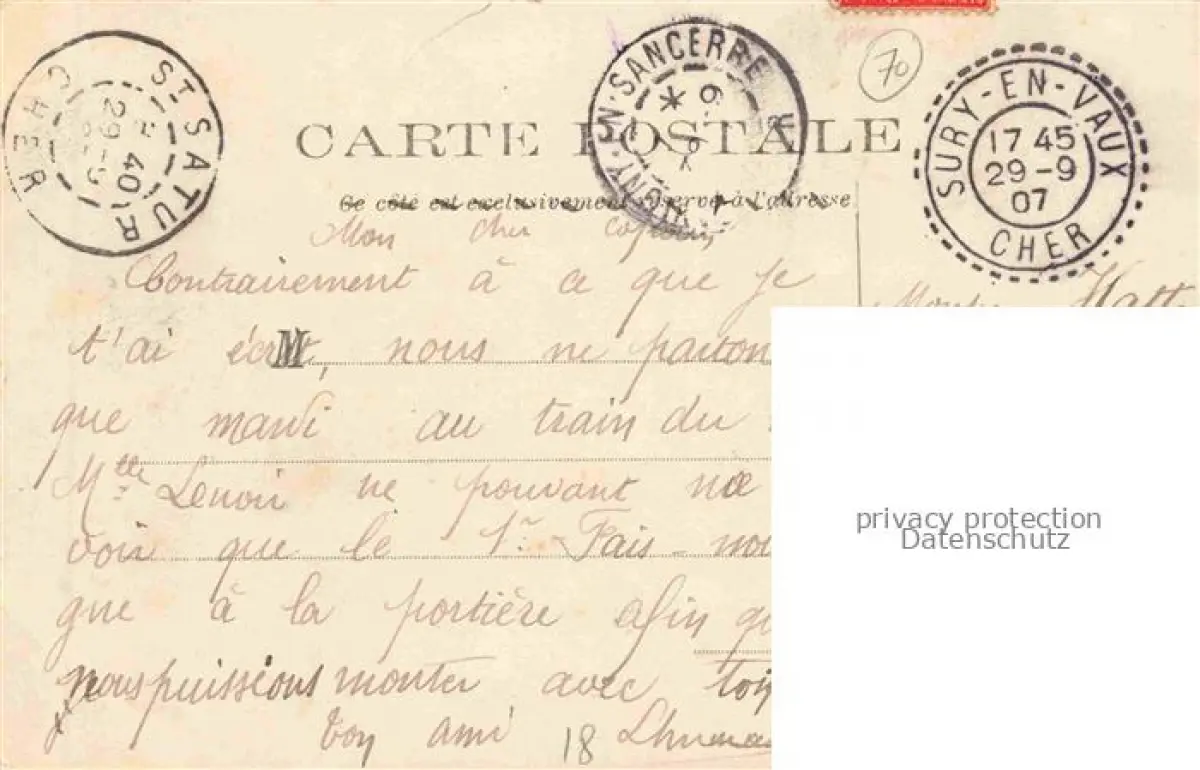 ST SATUR
CHER
40
29-9
N. SANCERRE
6
70
SURY-EN-VAUX
17 45
29-9
07
CHER
CARTE POSTALE
Ce côté est exclusivement réservé à l'adresse
Mon cher
Contrairement à ce que je
t'ai écrit, nous ne parton
M
que mardi au train du
Mlle Lenoir ne pouvant
voir que le 1r. Fais-nou
gne à la portière afin qu
nous puissions monter avec toi
Ton ami
18
privacy protection
Datenschutz